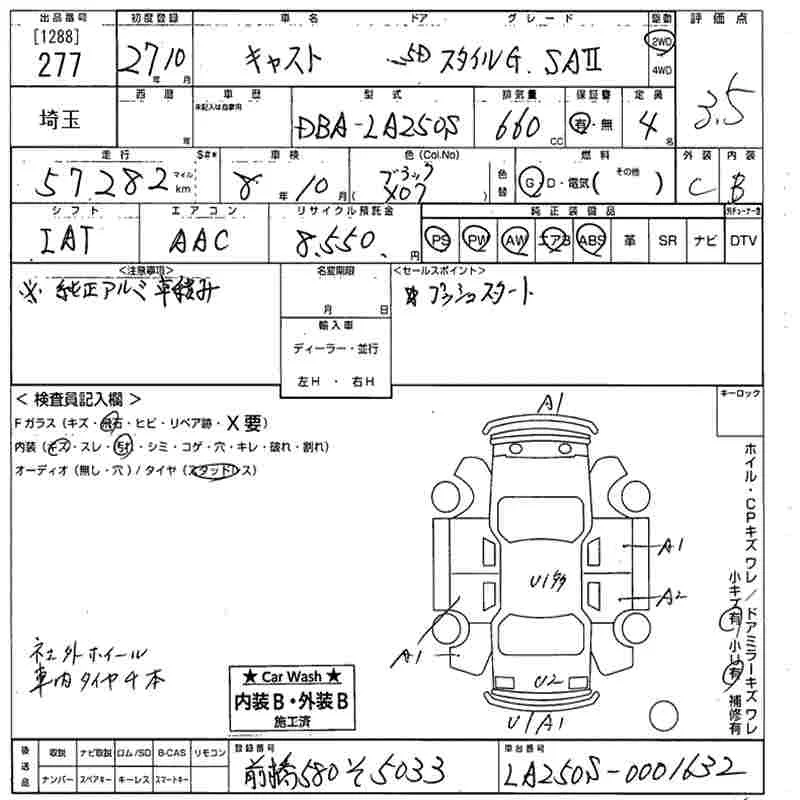 出品番号 初度登録 車名 ドア グレード 駆動 評価点
[1288]
277 27年10月 キャスト 5D スタイルG. SAⅡ 2WD 4WD 3.5
埼玉 西暦 年 車歴 未記入は自家用 型式 DBA-LA250S 排気量 660 CC 保証書 有・無 定員 4名
走行 S#* 車検 色(Col.No) 燃料 外装 内装
57,282 マイル km 8年10月 ( ブラック X07 ) 色替 G・D・電気( その他 ) C B
シフト エアコン リサイクル預託金 純正装備品
IAT AAC 8,550.円 PS PW AW エアB ABS 革 SR ナビ DTV
<注意事項> 名変期限 <セールスポイント>
※ 純正アルミ 車積み 月 日 プッシュスタート
輸入車
ディーラー・並行
左H ・ 右H
< 検査員記入欄 > キーロック
Fガラス (キズ・飛石・ヒビ・リペア跡・X要)
内装 (キズ・スレ・汚れ・シミ・コゲ・穴・キレ・破れ・割れ)
オーディオ (無し・穴) / タイヤ (スタッドレス)
A1
A1
U1多々
A2
A1
U2
U1/A1
ホイル・CPキズ ワレ / ドアミラーキズ ワレ
小キズ有 / 小U有 補修有
社外ホイール
車内タイヤ4本
★ Car Wash ★
内装B・外装B
施工済
後送品 取説 ナビ取説 ロム/SD B-CAS リモコン
ナンバー スペアキー キーレス スマートキー
登録番号 前橋580そ5033
車台番号 LA250S-0001632